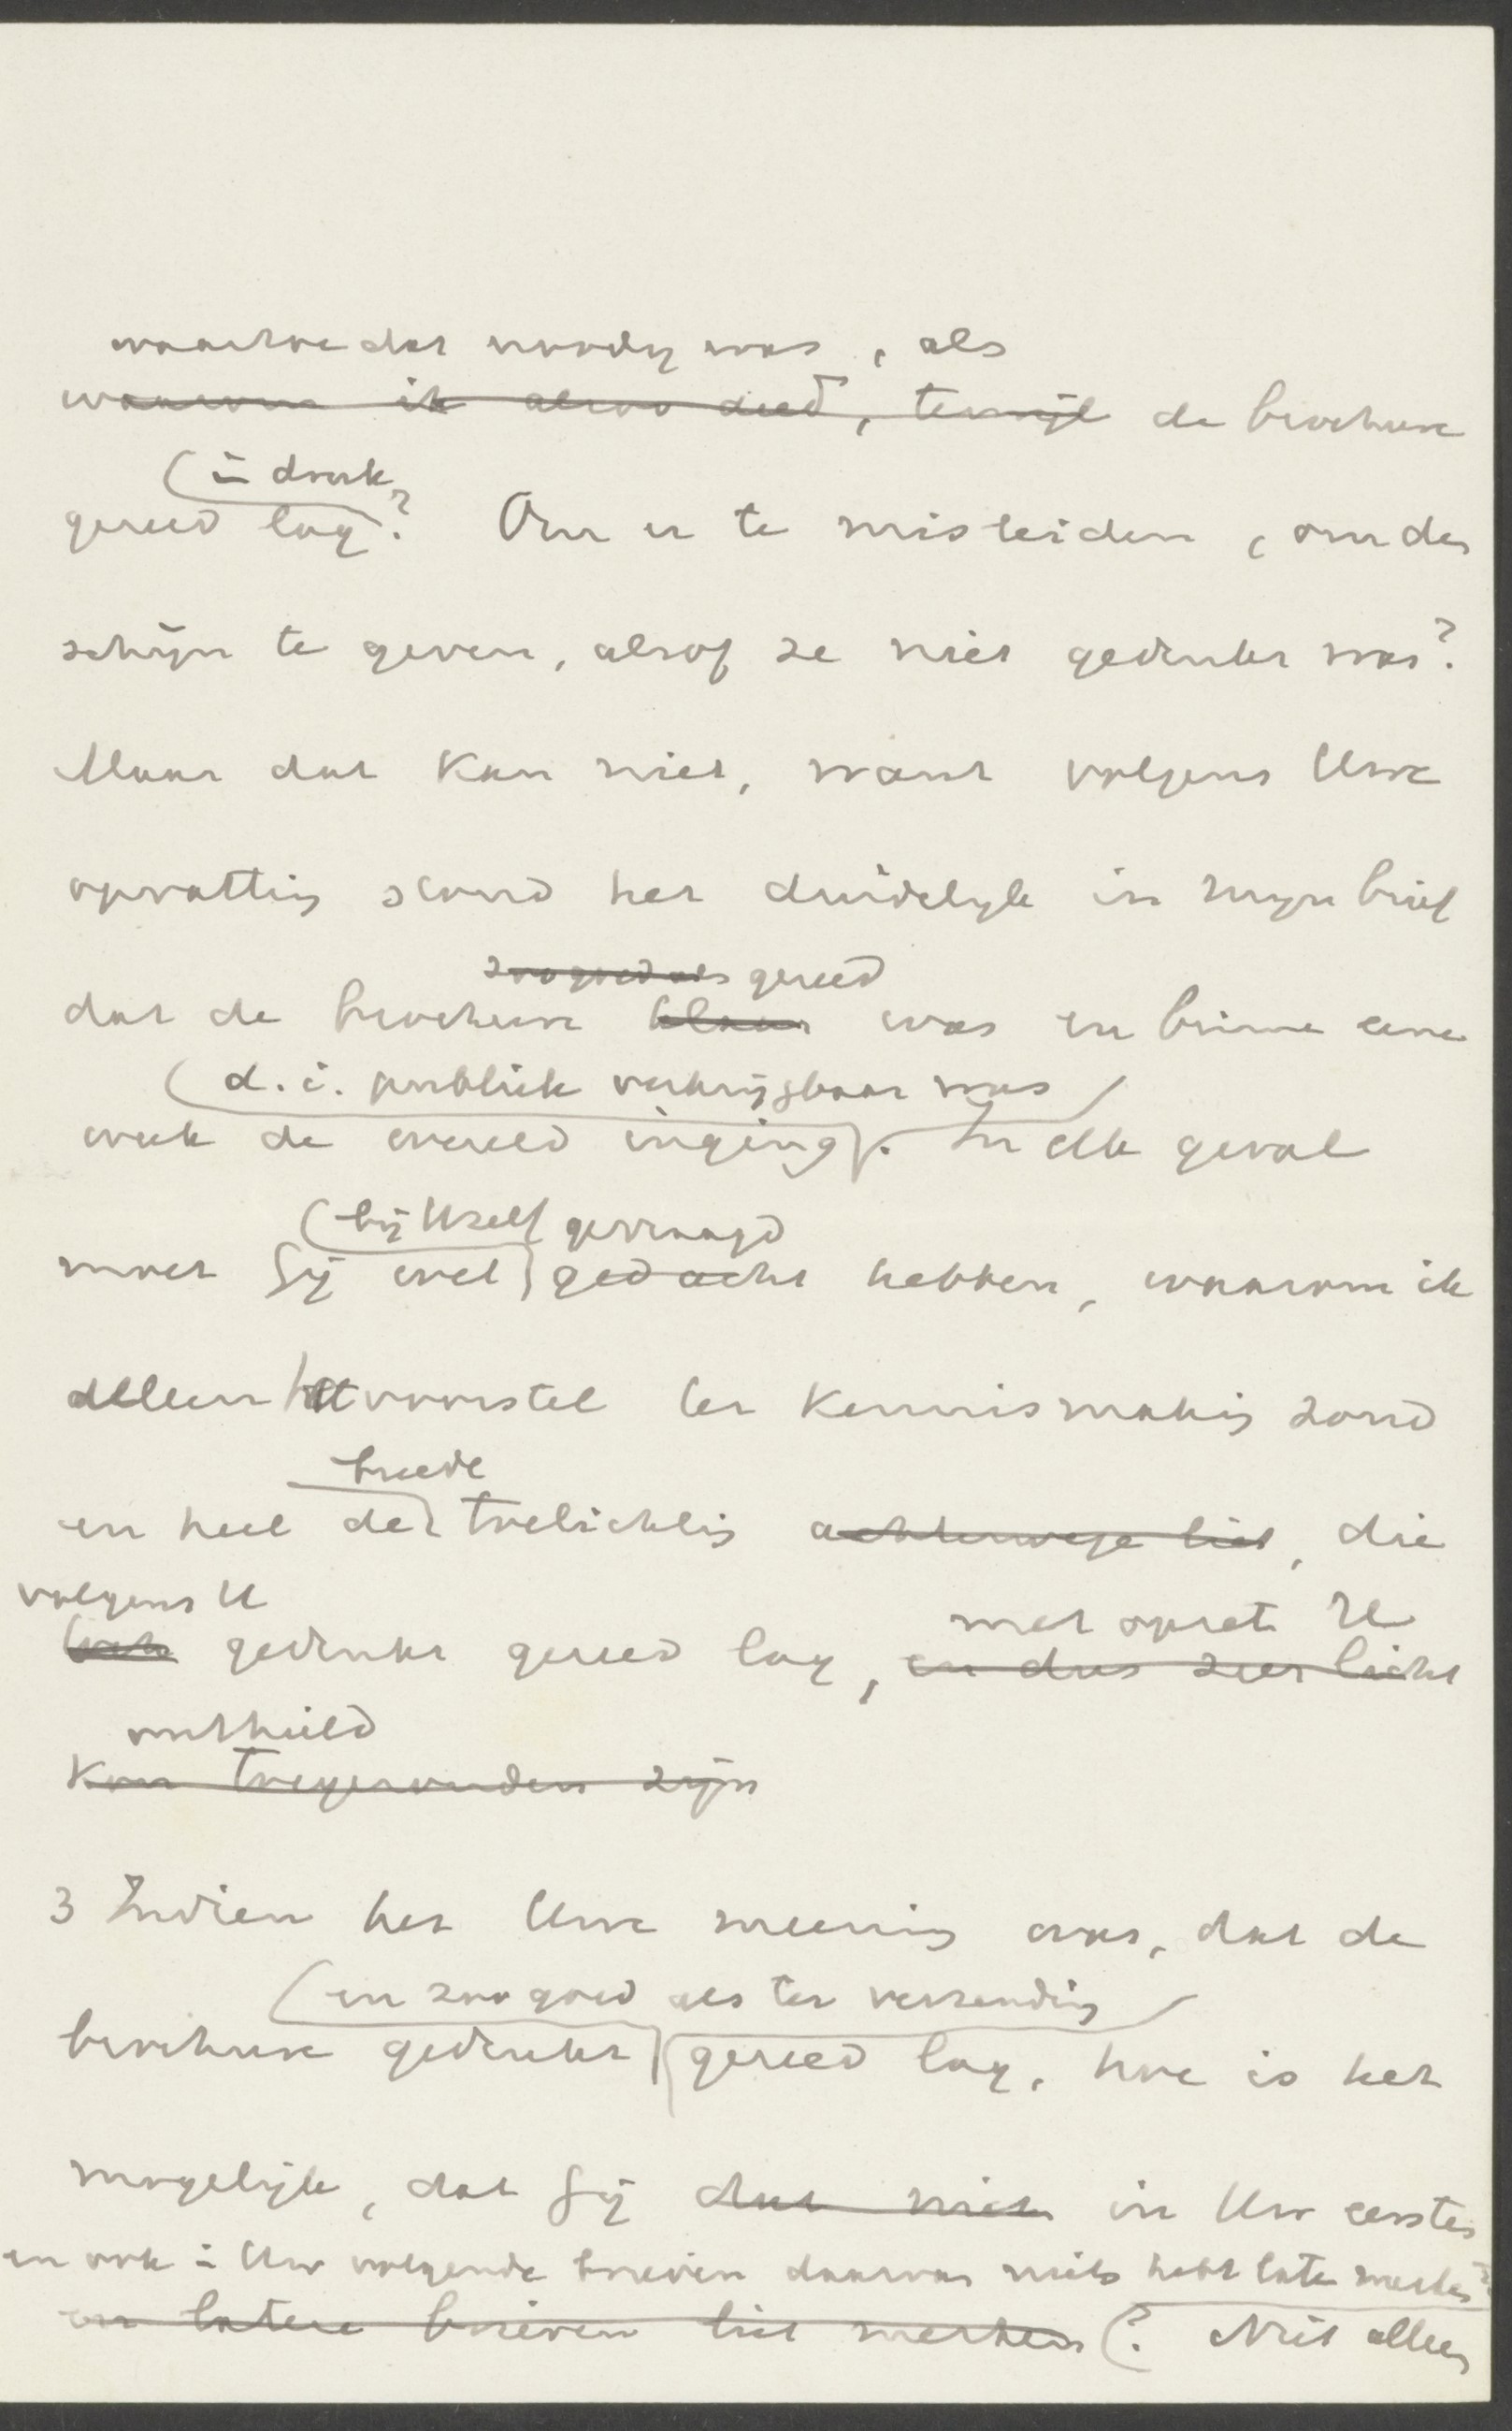 waartoe dat noodig was, als
waarom ik alzoo deed, terwijl de brochure
in druk
gereed lag? Om u te misleiden, om den
schijn te geven, alsof ze niet gedrukt was?
Maar dat kan niet, want volgens Uwe
opvatting stond het duidelyk in myn brief
zoo goed als gereed
dat de brochure klaar was en binne eene
d.i. publiek verkrijgbaar was
week de wereld inging. In elk geval
bij Uzelf gevraagd
moet Gij wel gedacht hebben, waarom ik
alleen het voorstel ter kennismaking zond
breede
en heel de toelichting achterwege liet, die
volgens U
gedrukt gereed lag, en dus zeer licht
met opzet U
onthield
kon toegevonden zijn
3 Indien het Uwe meening was, dat de
en zoo goed als ter verzending
brochure gedrukt gereed lag, hoe is het
mogelijk, dat Gij dat niet in Uw eersten
en ook in Uw volgende brieven daarvan niets hebt laten merken?
en latere brieven liet merken? Niet alleen